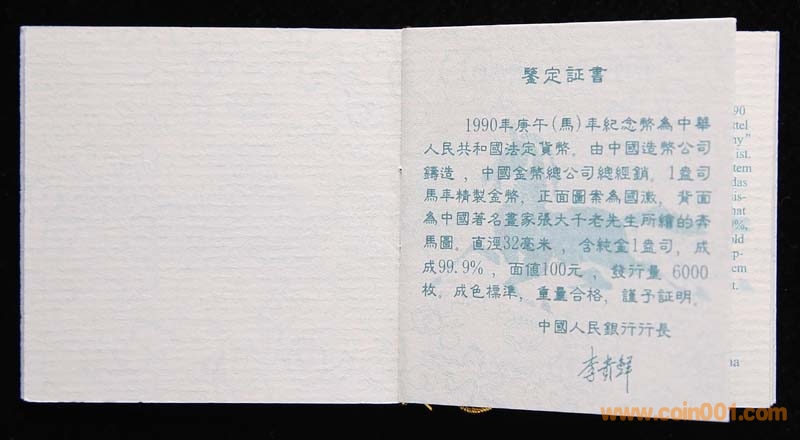 鑒定証書
1990年庚午(馬)年紀念幣為中華
人民共和國法定貨幣。由中國造幣公司
鑄造，中國金幣總公司總經銷。1盎司
馬年精製金幣，正面圖案為國徽，背面
為中國著名畫家張大千老先生所繪的奔
馬圖。直徑32毫米，含純金1盎司，成
成99.9%，面值100元，發行量6000
枚。成色標準，重量合格，謹予証明。
中國人民銀行行長
李貴鮮
90
ttel
ny"
ist.
tem
das
is-
hat
9%,
old
p-
em
t.
na
www.coin001.com